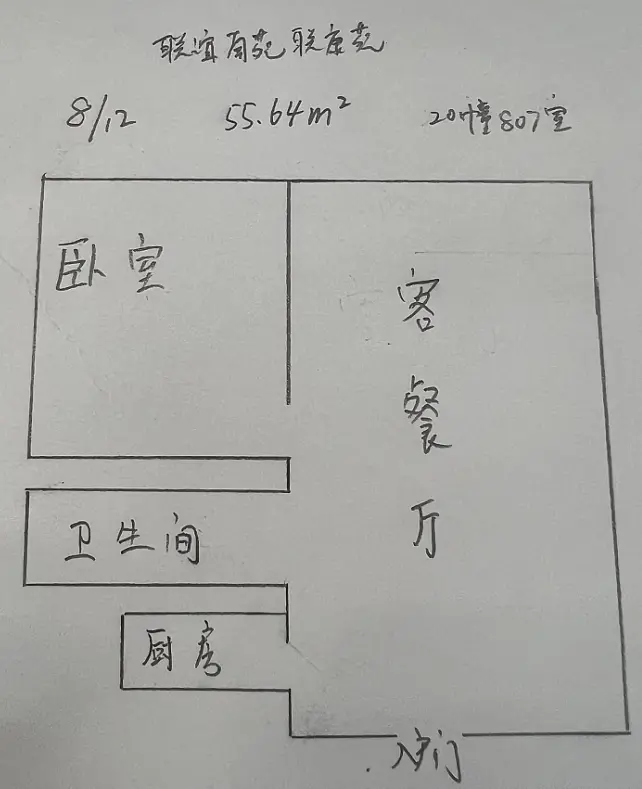 联谊南苑联康苑
8/12 55.64m² 20幢807室
卧室
客餐厅
卫生间
厨房
入户门